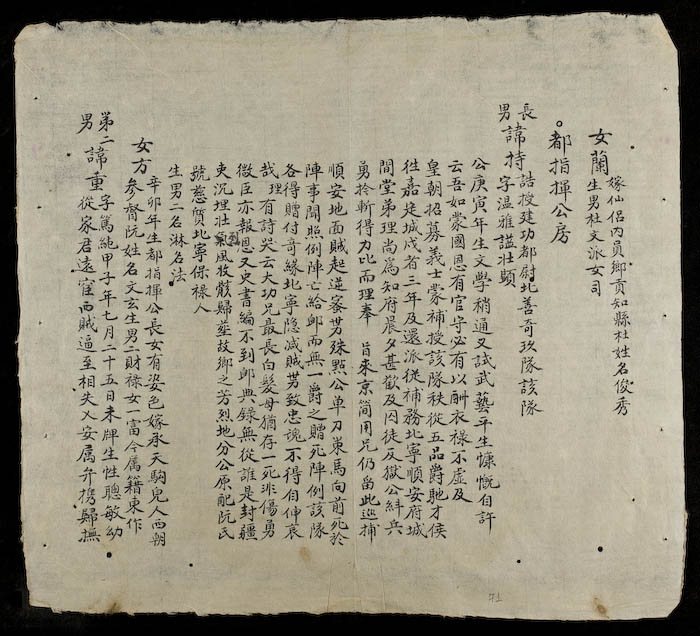 女蘭 嫁仙侶內員鄉貢知縣杜姓名俊秀
生男杜文派女司
都指揮公房
長男 諱持 誥授建功都尉北善奇玖隊該隊
字温雅諡壯顯
公庚寅年生文學稍通又試武藝平生慷慨自許
云吾如蒙國恩有官守必有以酬衣祿不虛及
皇朝招募義士蒙補授該隊秩從五品爵馳才侯
徃嘉定城戍省三年及還派從補務北寧順安府城
間堂弟理尚為知府晨夕甚歡及囚徒反獄公紏兵
勇拎斬得力比而理奉 旨來京简用兄仍留此巡捕
順安地面賊起逆蜜芳殊點公单刀東馬向前死於
陣事聞照例陣亡給䘏而無一爵之贈死陣例該隊
各得贈付奇緣北寧隐减賊芳致忠魂不得自伸哀
哉理有詩哭云大功兄最長白髮母猶存一死非傷勇
微臣亦報恩又史書編不到䘏典錄無從誰是封疆
吏沉埋壮氣風牧骸歸塟故鄉之芳烈地分公原配阮氏
號慈質北寧保祿人
生男二名淋名法
女方 辛卯年生都指揮公長女有姿色嫁承天駒兒人西朝
參督阮姓名文玄生男二財祿女一富今属籍東作
第二男 諱重 字篤純甲子年七月二十五日未牌生性聰敏幼
從家君遠窪西賊逼至相失乂安属弁携歸撫
71